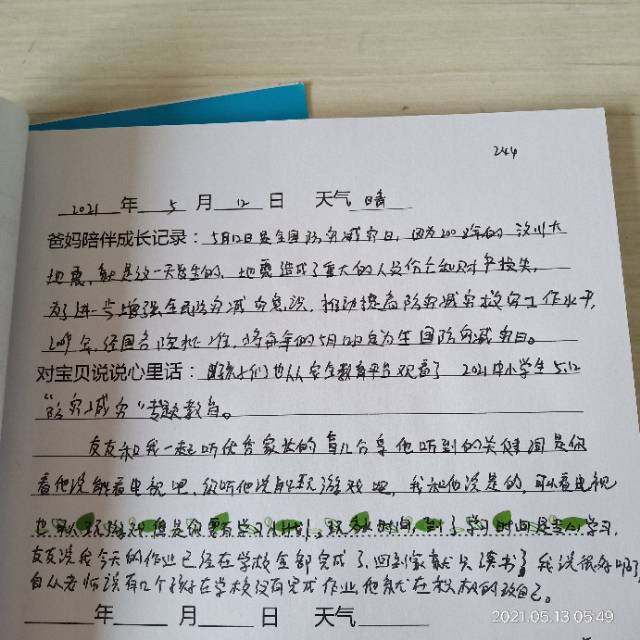 244
2021 年 5 月 12 日 天气 晴
爸妈陪伴成长记录：5月12日是全国防灾减灾日，因为2008年的汶川大
地震，就是这一天发生的，地震造成了重大的人员伤亡和财产损失，
为了进一步增强全民防灾减灾意识，推动提高防灾减灾救灾工作水平，
2009年，经国务院批准，将每年的5月12日定为全国防灾减灾日。
对宝贝说说心里话：跟孩子们也从安全教育平台观看了 2021中小学生5.12
“防灾减灾”专题教育。
友友和我一起听优秀家长的育儿分享他听到的关键词是你
看他说能看电视吧，你听他说能玩游戏吧，我和他说是的，可以看电视
也可以玩游戏但是你要有学习计划，玩多长时间，到了学习时间是要学习，
友友说我今天的作业已经在学校全部完成了，回到家就只读书了我说很好啊
自从老师说有几个孩子在学校没有完成作业他就在积极的改自己。
年 月 日 天气
2021.05.13 05:49